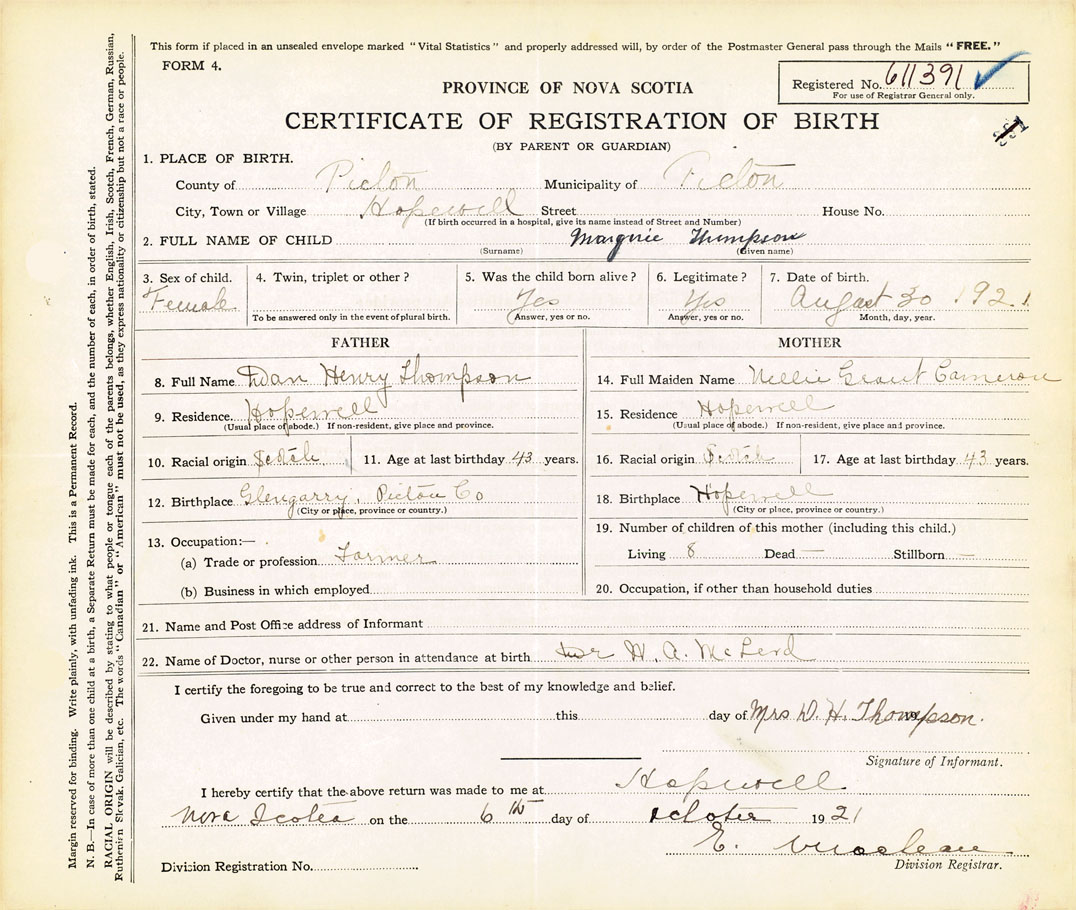 This form if placed in an unsealed envelope marked "Vital Statistics" and properly addressed will, by order of the Postmaster General pass through the Mails "FREE."
FORM 4.
Registered No. 611391
For use of Registrar General only.
PROVINCE OF NOVA SCOTIA
CERTIFICATE OF REGISTRATION OF BIRTH
(BY PARENT OR GUARDIAN)
1. PLACE OF BIRTH.
County of Pictou Municipality of Pictou
City, Town or Village Hopewell Street House No.
(If birth occurred in a hospital, give its name instead of Street and Number)
2. FULL NAME OF CHILD Margrie Thumpson
(Surname) (Given name)
3. Sex of child. 4. Twin, triplet or other? 5. Was the child born alive? 6. Legitimate? 7. Date of birth.
Female Yes Yes August 30 1921.
To be answered only in the event of plural birth. Answer, yes or no. Answer, yes or no. Month, day, year.
FATHER
8. Full Name Dan Henry Thompson
9. Residence. Hopewell
(Usual place of abode.) If non-resident, give place and province.
10. Racial origin Scotch 11. Age at last birthday 43 years.
12. Birthplace Glengarry, Pictou Co
(City or place, province or country.)
13. Occupation:—
(a) Trade or profession Farmer
(b) Business in which employed
MOTHER
14. Full Maiden Name Nellie Grant Cameron
15. Residence Hopewell
(Usual place of abode.) If non-resident, give place and province.
16. Racial origin Scotch 17. Age at last birthday 43 years.
18. Birthplace Hopewell
(City or place, province or country.)
19. Number of children of this mother (including this child.)
Living 8 Dead — Stillborn —
20. Occupation, if other than household duties
21. Name and Post Office address of Informant
22. Name of Doctor, nurse or other person in attendance at birth Dr H. A. McLeod
I certify the foregoing to be true and correct to the best of my knowledge and belief.
Given under my hand at this day of Mrs D. H. Thompson.
Signature of Informant.
I hereby certify that the above return was made to me at Hopewell
Nova Scotia on the 6th day of October 1921
E. Maclean
Division Registrar.
Division Registration No.
Margin reserved for binding. Write plainly, with unfading ink. This is a Permanent Record.
N. B.—In case of more than one child at a birth, a Separate Return must be made for each, and the number of each, in order of birth, stated.
RACIAL ORIGIN will be described by stating to what people or tongue each of the parents belongs, whether English, Irish, Scotch, French, German, Russian,
Ruthenian Slovak, Galician, etc. The words "Canadian" or "American" must not be used, as they express nationality or citizenship but not a race or people.